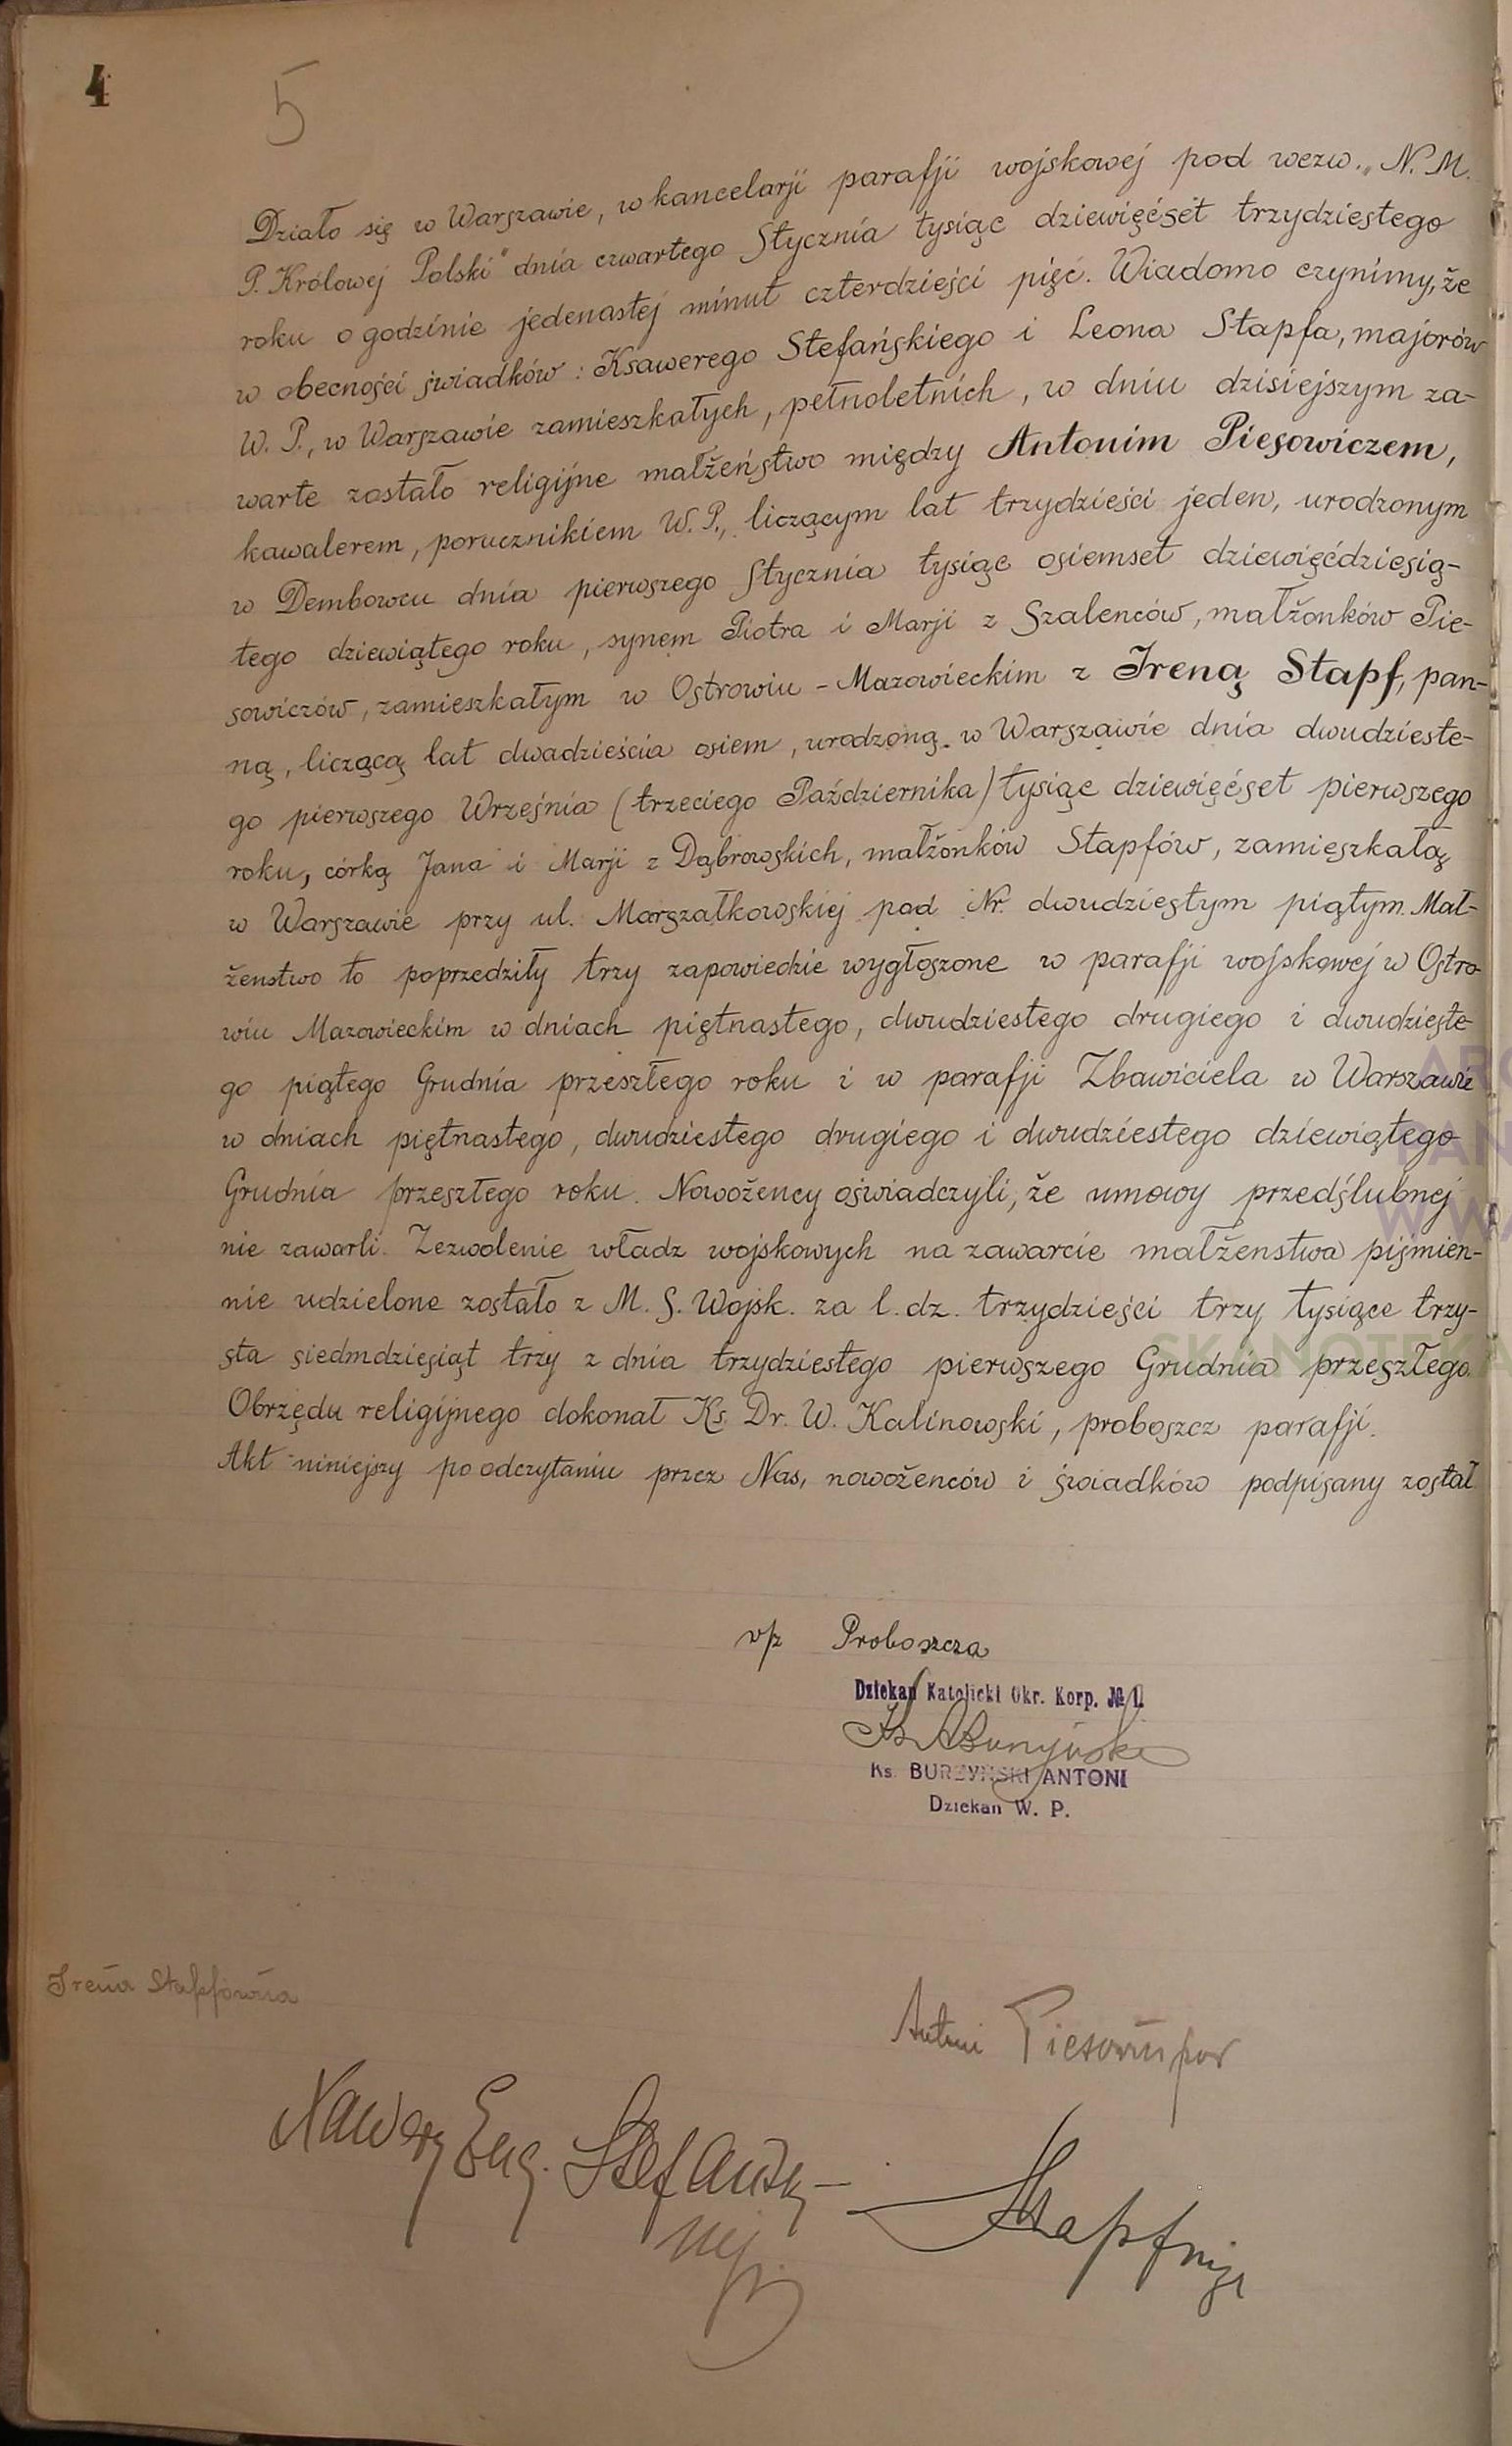 4
5
Działo się w Warszawie, w kancelarji parafji wojskowej pod wezw. „N. M.
P. Królowej Polski" dnia czwartego Stycznia tysiąc dziewięćset trzydziestego
roku o godzinie jedenastej minut czterdzieści pięć. Wiadomo czynimy, że
w obecności świadków: Ksawerego Stefańskiego i Leona Stapfa, majorów
W. P., w Warszawie zamieszkałych, pełnoletnich, w dniu dzisiejszym za-
warte zostało religijne małżeństwo między Antonim Piesowiczem,
kawalerem, porucznikiem W. P., liczącym lat trzydzieści jeden, urodzonym
w Dembowcu dnia pierwszego Stycznia tysiąc osiemset dziewięćdziesią-
tego dziewiątego roku, synem Piotra i Marji z Szalenców, małżonków Pie-
sowiczów, zamieszkałym w Ostrowiu - Mazowieckim z Ireną Stapf, pan-
ną, liczącą lat dwadzieścia osiem, urodzoną w Warszawie dnia dwudzieste-
go pierwszego Września (trzeciego Października) tysiąc dziewięćset pierwszego
roku, córką Jana i Marji z Dąbrowskich, małżonków Stapfów, zamieszkałą
w Warszawie przy ul. Marszałkowskiej pod Nr. dwudziestym piątym. Mał-
żenstwo to poprzedziły trzy zapowiedzie wygłoszone w parafji wojskowej w Ostro-
wiu Mazowieckim w dniach piętnastego, dwudziestego drugiego i dwudzieste-
go piątego Grudnia przeszłego roku i w parafji Zbawiciela w Warszawie
w dniach piętnastego, dwudziestego drugiego i dwudziestego dziewiątego
Grudnia przeszłego roku. Nowożency oświadczyli, że umowy przedślubnej
nie zawarli. Zezwolenie władz wojskowych na zawarcie małżenstwa piśmien-
nie udzielone zostało z M. S. Wojsk. za l. dz. trzydzieści trzy tysiące trzy-
sta siedmdziesiąt trzy z dnia trzydziestego pierwszego Grudnia przeszłego.
Obrzędu religijnego dokonał Ks. Dr. W. Kalinowski, proboszcz parafji.
Akt niniejszy po odczytaniu przez Nas, nowożenców i świadków podpisany został.
w/z Proboszcza
Dziekan Katolicki Okr. Korp. № 1.
Ks. A. Burzyński
Ks. BURZYŃSKI ANTONI
Dziekan W. P.
Irena Stapfówna
Antoni Piesowicz por
Xawery Eug. Stefański
mjr.
Stapf mjr
SKANOTEKA